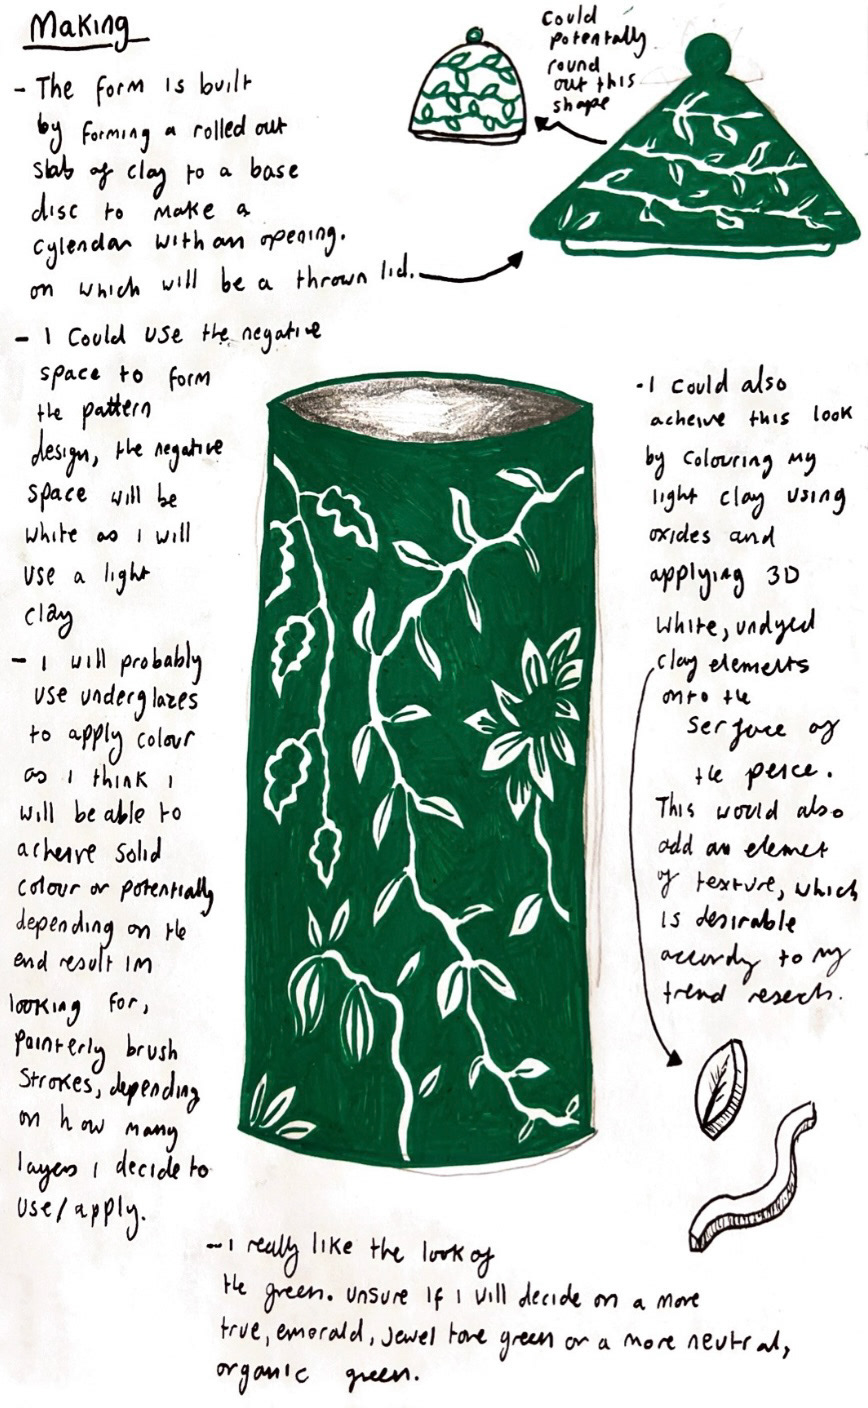 Making
- The form is built
by forming a rolled out
slab of clay to a base
disc to make a
cylendar with an opening.
on which will be a thrown lid.
Could
potentally
round
out this
shape
- I Could use the negative
space to form
the pattern
design, the negative
space will be
white as I will
use a light
clay
- I will probably
use underglazes
to apply colour
as I think I
will be able to
acheive solid
colour or potentially
depending on the
end result im
looking for,
painterly brush
strokes, depending
on how many
layers I decide to
use/apply.
- I could also
acheive this look
by colouring my
light clay using
oxides and
applying 3D
white, undyed
clay elements
onto the
serface of
the peice.
This would also
add an elemet
of texture, which
is desirable
accordy to my
trend reserch.
- I really like the look of
the green. unsure if I will decide on a more
true, emerald, jewel tone green or a more neutral,
organic green.